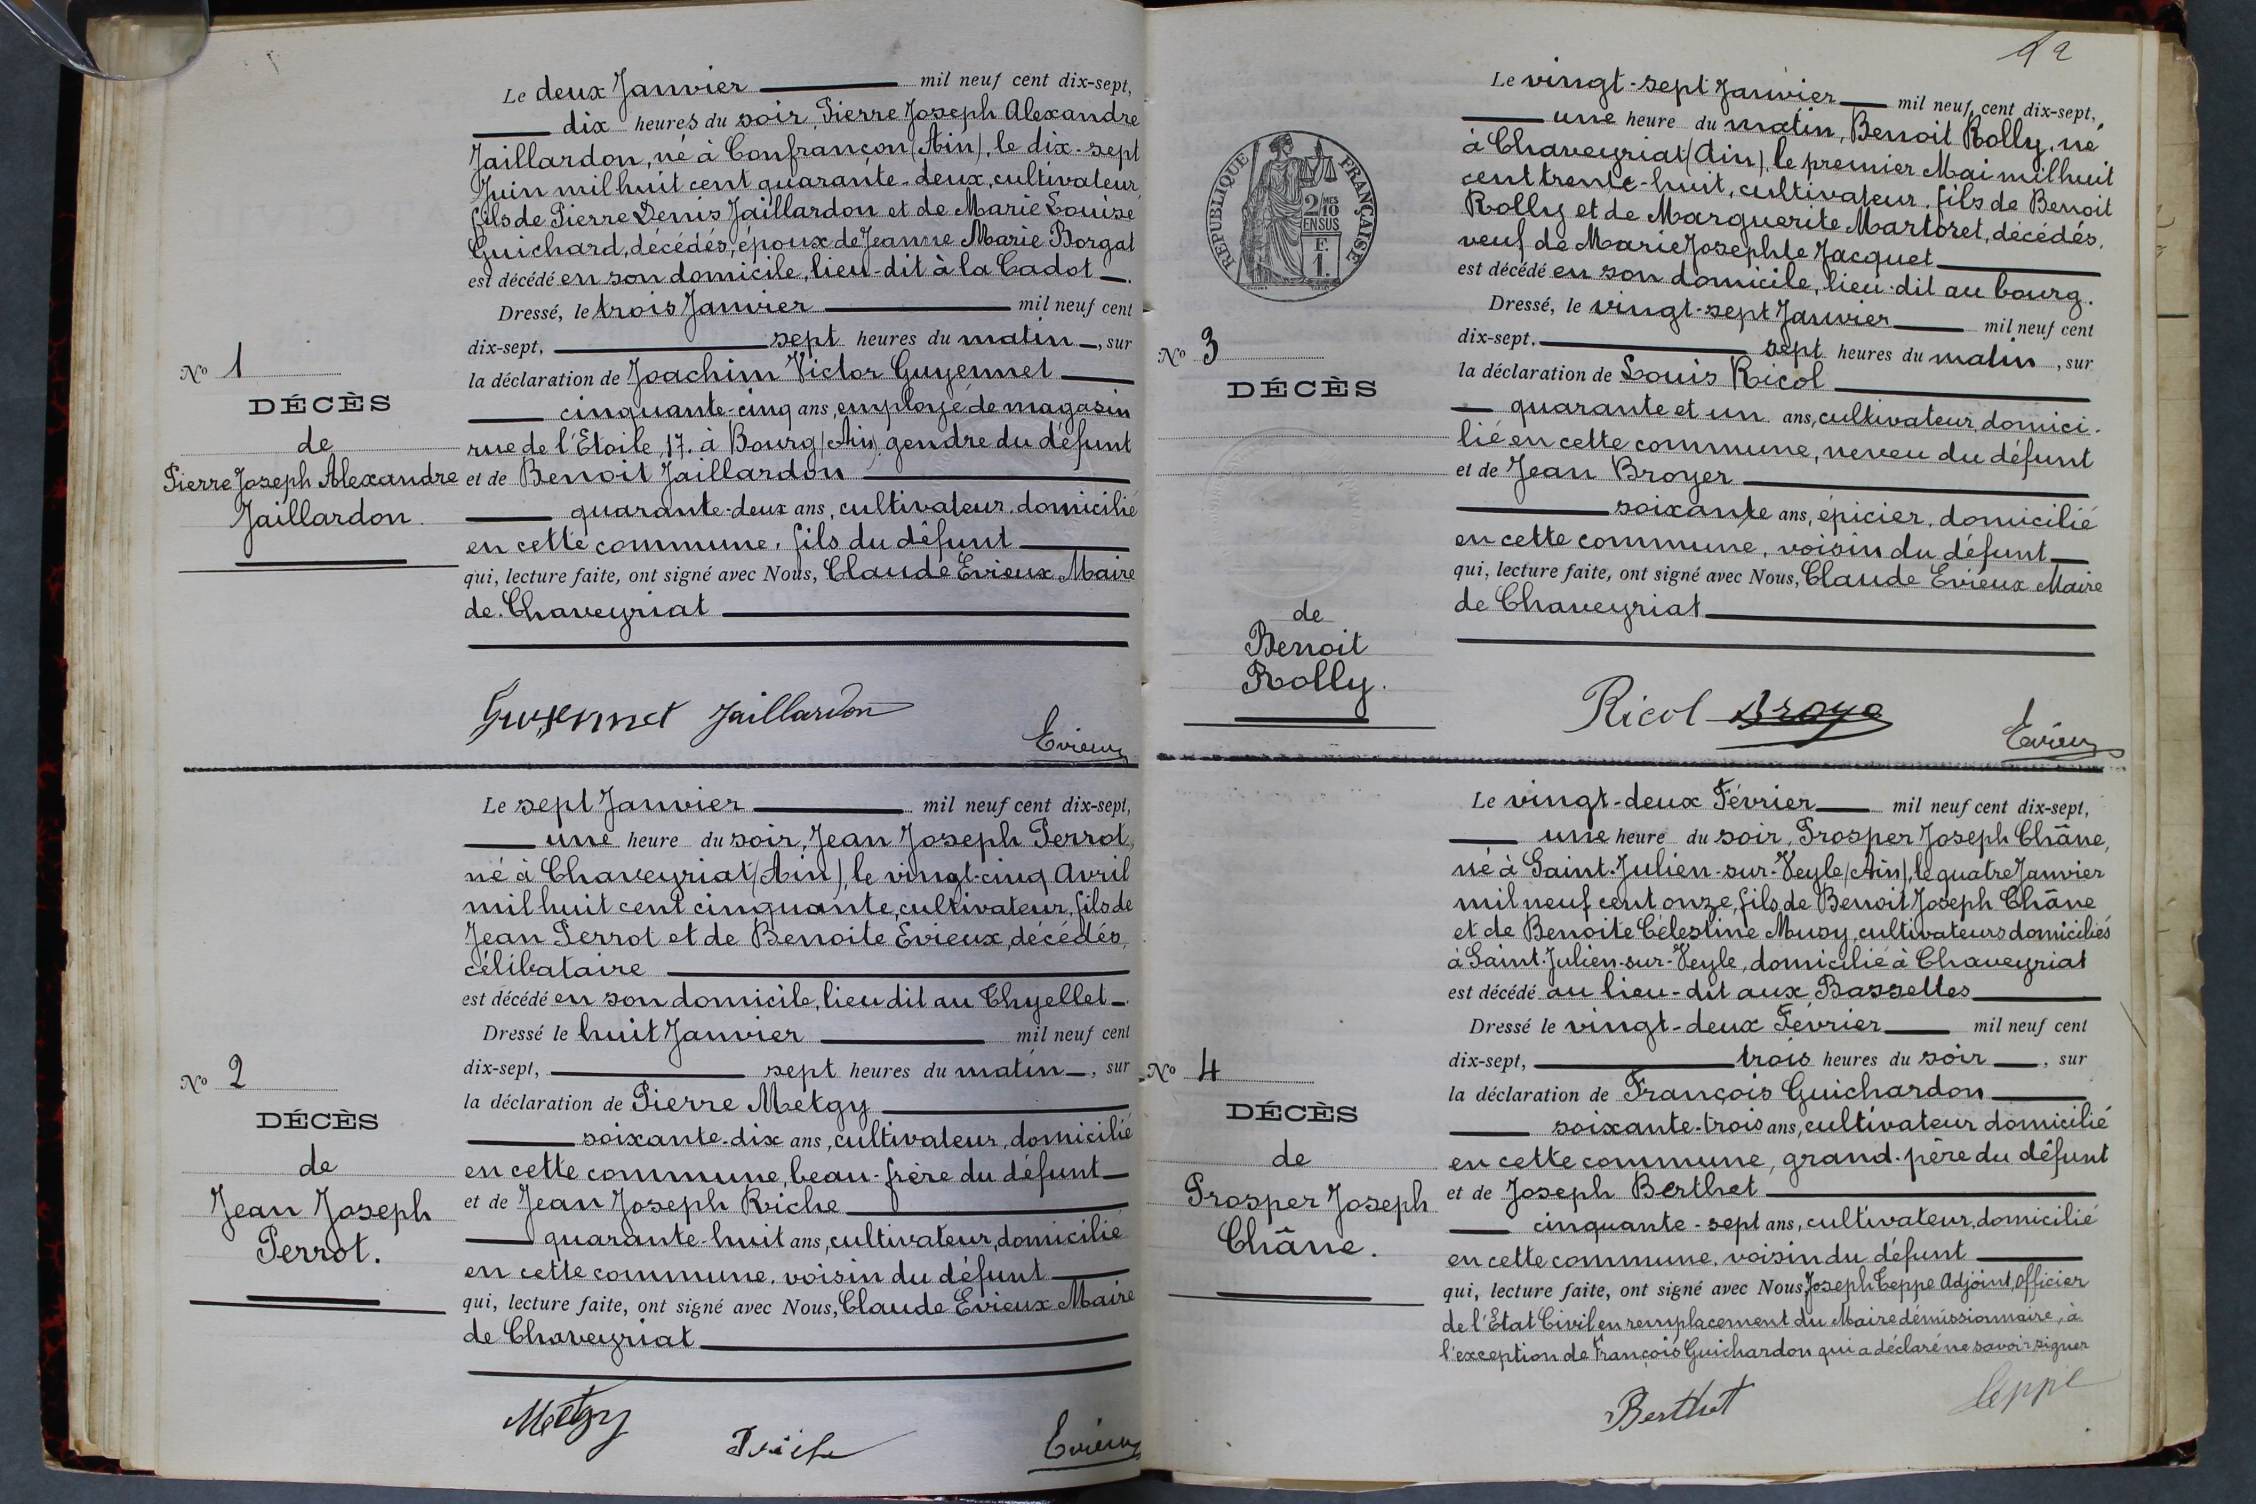 Le deux Janvier mil neuf cent dix-sept,
dix heures du soir, Pierre Joseph Alexandre
Jaillardon, né à Confrançon (Ain), le dix-sept
Juin mil huit cent quarante-deux, cultivateur,
fils de Pierre Denis Jaillardon et de Marie Louise
Guichard, décédés, époux de Jeanne Marie Borgat
est décédé en son domicile, lieu-dit à la Cadot.
Dressé, le trois Janvier mil neuf cent
dix-sept, sept heures du matin, sur
la déclaration de Joachim Victor Guyennet
cinquante-cinq ans, employé de magasin
rue de l'Etoile, 17. à Bourg (Ain), gendre du défunt
et de Benoit Jaillardon
quarante-deux ans, cultivateur, domicilié
en cette commune, fils du défunt
qui, lecture faite, ont signé avec Nous, Claude Evieux Maire
de Chaveyriat
Nº 1
DÉCÈS
de
Pierre Joseph Alexandre
Jaillardon.
Guyennet Jaillardon
Evieux
Le sept Janvier mil neuf cent dix-sept,
une heure du soir, Jean Joseph Perrot,
né à Chaveyriat (Ain), le vingt-cinq Avril
mil huit cent cinquante, cultivateur, fils de
Jean Perrot et de Benoite Evieux, décédés,
célibataire
est décédé en son domicile, lieu dit au Chyellet.
Dressé le huit Janvier mil neuf cent
dix-sept, sept heures du matin, sur
la déclaration de Pierre Metgy
soixante-dix ans, cultivateur, domicilié
en cette commune, beau-frère du défunt
et de Jean Joseph Riche
quarante-huit ans, cultivateur, domicilié
en cette commune, voisin du défunt
qui, lecture faite, ont signé avec Nous, Claude Evieux Maire
de Chaveyriat
Nº 2
DÉCÈS
de
Jean Joseph
Perrot.
Metgy
Riche
Evieux
2
Le vingt-sept Janvier mil neuf cent dix-sept,
une heure du matin, Benoit Rolly, né
à Chaveyriat (Ain), le premier Mai mil huit
cent trente-huit, cultivateur, fils de Benoit
Rolly et de Marguerite Martoret, décédés,
veuf de Marie Josephte Jacquet
est décédé en son domicile, lieu-dit au bourg.
Dressé, le vingt-sept Janvier mil neuf cent
dix-sept, sept heures du matin, sur
la déclaration de Louis Ricol
quarante et un ans, cultivateur, domici-
lié en cette commune, neveu du défunt
et de Jean Broyer
soixante ans, épicier, domicilié
en cette commune, voisin du défunt
qui, lecture faite, ont signé avec Nous, Claude Evieux Maire
de Chaveyriat
RÉPUBLIQUE FRANÇAISE
2/10 MES
EN SUS
F.
1.
Nº 3
DÉCÈS
de
Benoit
Rolly.
Ricol
Evieux
Le vingt-deux Février mil neuf cent dix-sept,
une heure du soir, Prosper Joseph Châne,
né à Saint-Julien-sur-Veyle (Ain), le quatre Janvier
mil neuf cent onze, fils de Benoit Joseph Châne
et de Benoite Célestine Musy, cultivateurs domiciliés
à Saint-Julien-sur-Veyle, domicilié à Chaveyriat
est décédé au lieu-dit aux Bassettes
Dressé le vingt-deux Février mil neuf cent
dix-sept, trois heures du soir, sur
la déclaration de François Guichardon
soixante-trois ans, cultivateur domicilié
en cette commune, grand-père du défunt
et de Joseph Berthet
cinquante-sept ans, cultivateur, domicilié
en cette commune, voisin du défunt
qui, lecture faite, ont signé avec Nous, Joseph Ceppe Adjoint, officier
de l'Etat Civil en remplacement du Maire démissionnaire, à
l'exception de François Guichardon qui a déclaré ne savoir signer
Nº 4
DÉCÈS
de
Prosper Joseph
Châne.
Berthet
Ceppe